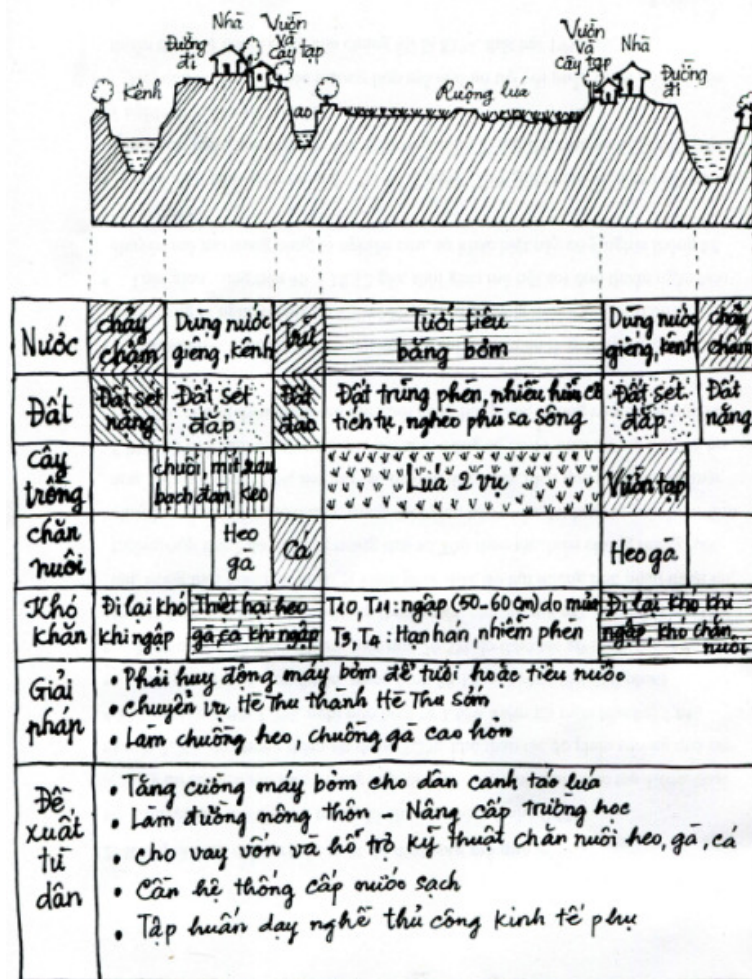 Nhà
Vườn
và
Cây tạp
Đường
đi
Kênh
ao
Ruộng lúa
Vườn
và
Cây tạp
Nhà
Đường
đi
Nước
chảy
chậm
Dùng nước
giếng, kênh
Trữ
Tưới tiêu
bằng bơm
Dùng nước
giếng, kênh
chảy
chậm
Đất
Đất sét
nặng
Đất sét
đắp
Đất
đào
Đất trũng phèn, nhiều hữu cơ
tích tụ, nghèo phù sa sông
Đất sét
đắp
Đất
nặng
Cây
trồng
chuối, mít, rau
bạch đàn, keo
Lúa 2 vụ
Vườn tạp
chăn
nuôi
Heo
gà
Cá
Heo gà
Khó
khăn
Đi lại khó
khi ngập
Thiệt hại heo
gà, cá khi ngập
T10, T11: ngập (50-60 cm) do mưa
T3, T4: Hạn hán, nhiễm phèn
Đi lại khó khi
ngập, khó chăn
nuôi
Giải
pháp
• Phải huy động máy bơm để tưới hoặc tiêu nước
• Chuyển vụ Hè Thu thành Hè Thu sớm
• Làm chuồng heo, chuồng gà cao hơn
Đề
xuất
từ
dân
• Tăng cường máy bơm cho dân canh tác lúa
• Làm đường nông thôn - Nâng cấp trường học
• cho vay vốn và hỗ trợ kỹ thuật chăn nuôi heo, gà, cá
• Cần hệ thống cấp nước sạch
• Tập huấn dạy nghề thủ công kinh tế phụ